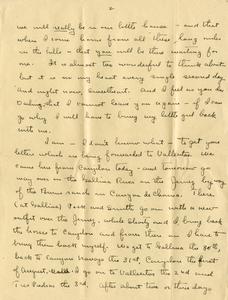 2
we will really be in our little house - and that
when I come home from all these long rides
in the hills - that you will be there waiting for
me. It is almost too wonderful to think about
but it is in my heart every single second day
and night now, sweetheart. And I feel as you do
Darling, that I cannot leave you again - if I can
go why I will have to bring my little girl back
with me.
I am - I don't know what - to get your
letters which are being forwarded to Vallecitos. We
came here from Canjilon today - and tomorrow go
way over on the Gallina River on the Jemez by way
of the ranch on Canyon de Chama. There
(at Gallina) Pack and Smith go on with a new
outfit over the Jemez, while Shorty and I bring back
the horses to Canjilon and from there on I have to
bring them back myself. We get to Gallina the 30th,
back to canyon navajo the 31st, Canjilon the first
of August. I go on to Vallecitos the 2nd and
Tres Piedras the 3rd. After about two or three days